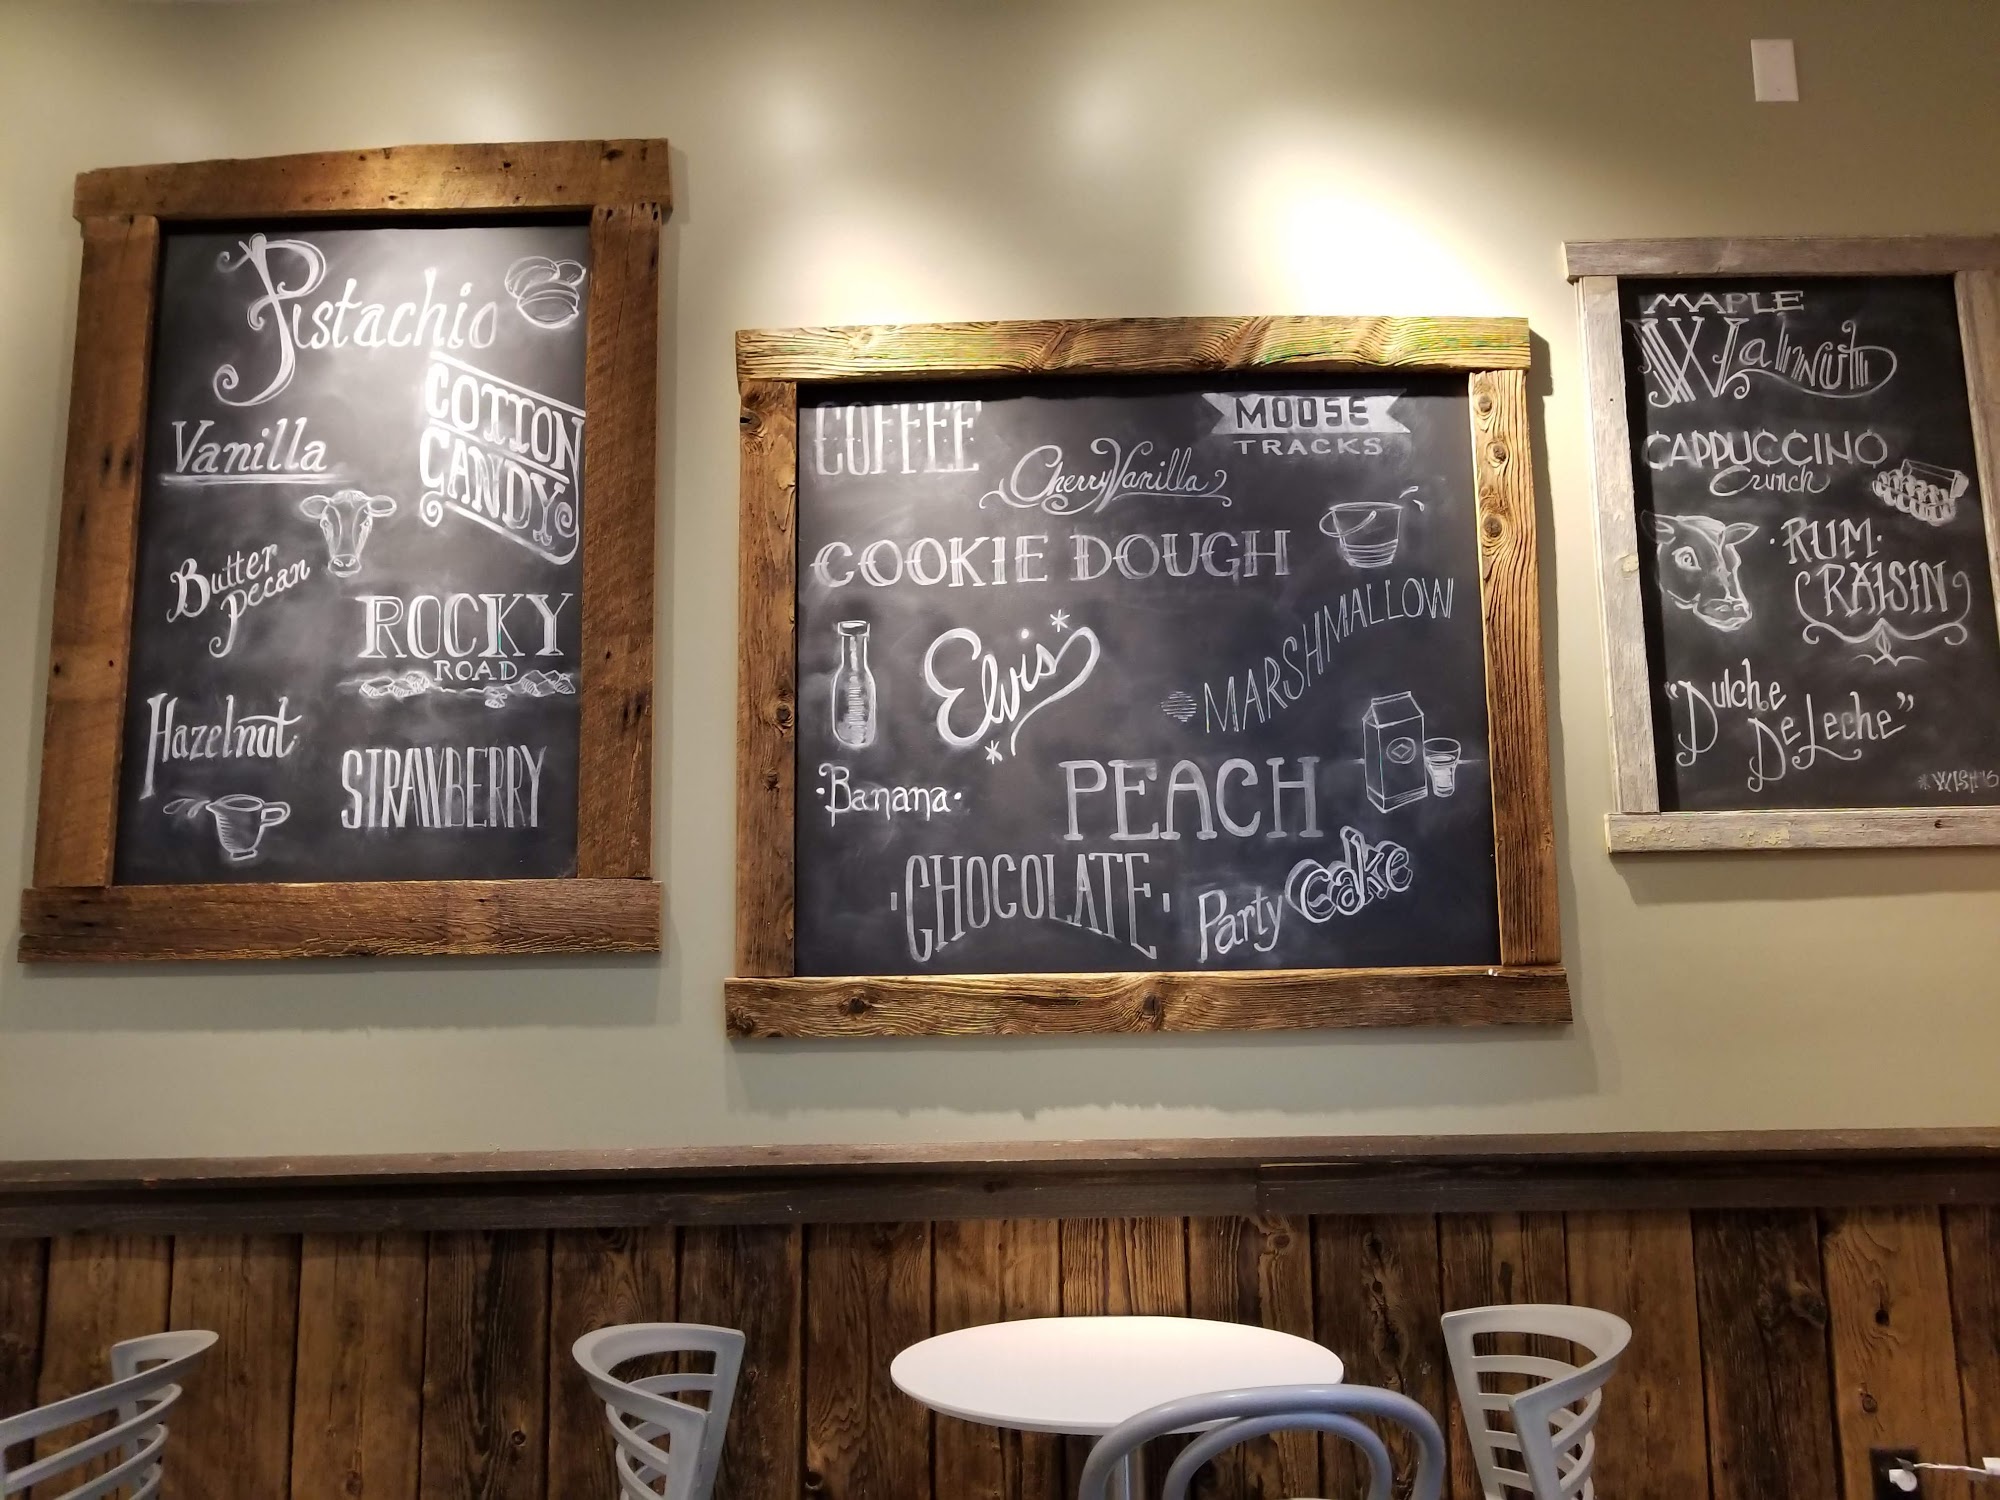 Pistachio
COTTON
CANDY
Vanilla
Butter
Pecan
ROCKY
ROAD
Hazelnut
STRAWBERRY
COFFEE
MOOSE
TRACKS
Cherry Vanilla
COOKIE DOUGH
Elvis
MARSHMALLOW
·Banana·
PEACH
·CHOCOLATE·
Party Cake
MAPLE
Walnut
CAPPUCCINO
Crunch
·RUM·
RAISIN
"Dulche
De Leche"